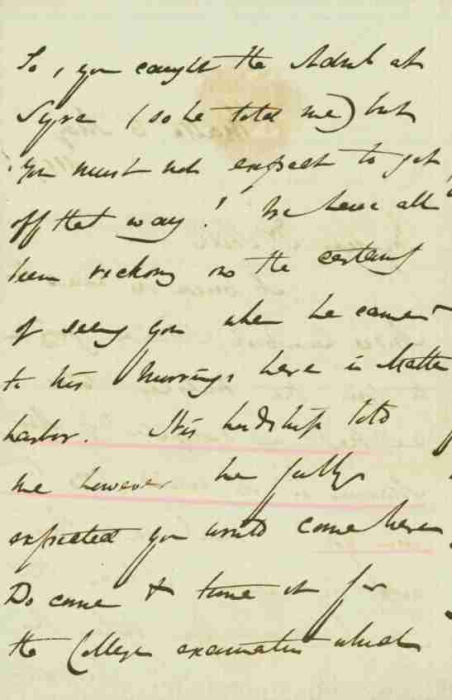 So, you caught the Admrl at
Syra (so he told me) but
you must not expect to get
off that way! We have all
been reckoning on the certainty
of seeing you when he came
to his moorings here in Malta
harbor. His Lordship told
me however he fully
expected you would come here
Do come & time it for
the College examination which